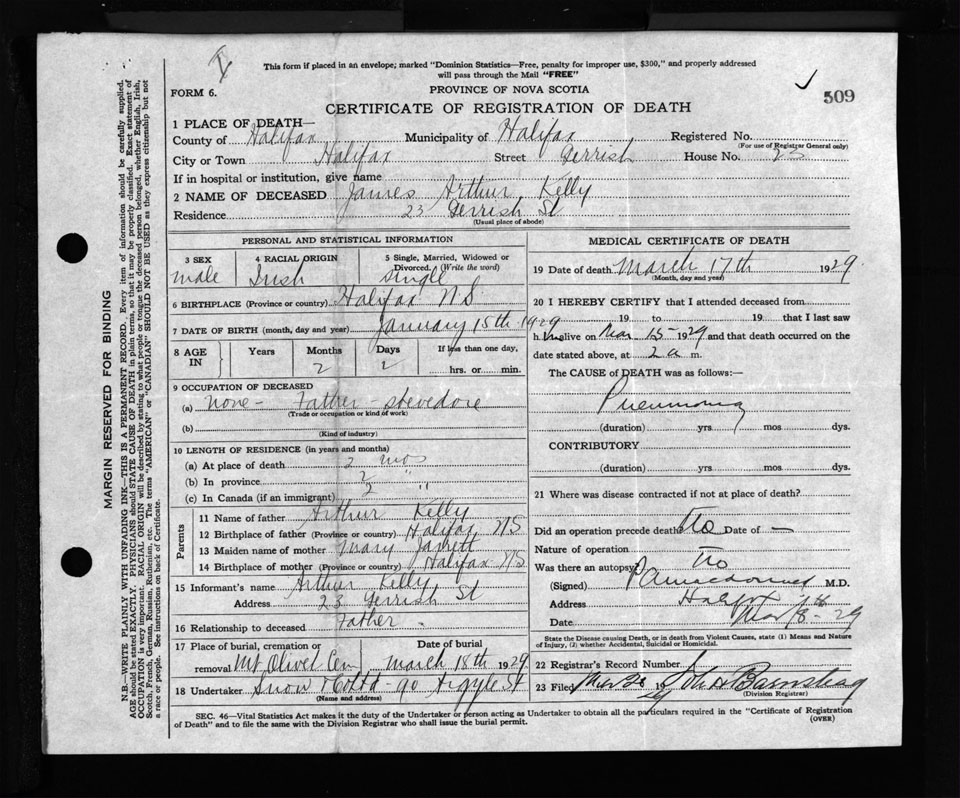 This form if placed in an envelope; marked "Dominion Statistics—Free, penalty for improper use, $300," and properly addressed
will pass through the Mail "FREE"
FORM 6.
PROVINCE OF NOVA SCOTIA
509
CERTIFICATE OF REGISTRATION OF DEATH
1 PLACE OF DEATH—
County of Halifax Municipality of Halifax Registered No.
(For use of Registrar General only)
City or Town Halifax Street Gerrish House No. 23
If in hospital or institution, give name
2 NAME OF DECEASED James Arthur Kelly
Residence 23 Gerrish St
(Usual place of abode)
PERSONAL AND STATISTICAL INFORMATION
3 SEX 4 RACIAL ORIGIN 5 Single, Married, Widowed or
Divorced. (Write the word)
male Irish single
6 BIRTHPLACE (Province or country) Halifax N S
7 DATE OF BIRTH (month, day and year) January 15th 1929
8 AGE IN Years Months Days If less than one day,
2 2 hrs. or min.
9 OCCUPATION OF DECEASED
(a) none - Father - stevedore
(Trade or occupation or kind of work)
(b)
(Kind of industry)
10 LENGTH OF RESIDENCE (in years and months)
(a) At place of death 2 mos
(b) In province 2 "
(c) In Canada (if an immigrant) 2 "
Parents
11 Name of father Arthur Kelly
12 Birthplace of father (Province or country) Halifax N S
13 Maiden name of mother Mary
14 Birthplace of mother (Province or country) Halifax N S
15 Informant's name Arthur Kelly
Address 23 Gerrish St
16 Relationship to deceased Father
17 Place of burial, cremation or Date of burial
removal Mt Olivet Cem March 18th 1929
18 Undertaker Snow & Co Ltd - 90 Argyle St
(Name and address)
MEDICAL CERTIFICATE OF DEATH
19 Date of death March 17th 1929
(Month, day and year)
20 I HEREBY CERTIFY that I attended deceased from
19 to 19 that I last saw
him alive on Mar 15- 1929 and that death occurred on the
date stated above, at 2 a m.
The CAUSE of DEATH was as follows:—
Pneumonia
(duration) yrs mos dys.
CONTRIBUTORY
(duration) yrs. mos. dys.
21 Where was disease contracted if not at place of death?
Did an operation precede death? No Date of —
Nature of operation
Was there an autopsy? No
(Signed) M.D.
Address Halifax
Date Mar 18th - 29
State the Disease causing Death, or in death from Violent Causes, state (1) Means and Nature
of Injury, (2) whether Accidental, Suicidal or Homicidal.
22 Registrar's Record Number
23 Filed John Barnstead
(Division Registrar)
SEC. 46—Vital Statistics Act makes it the duty of the Undertaker or person acting as Undertaker to obtain all the particulars required in the "Certificate of Registration
of Death" and to file the same with the Division Registrar who shall issue the burial permit.
(OVER)
MARGIN RESERVED FOR BINDING
N.B.—WRITE PLAINLY WITH UNFADING INK—THIS IS A PERMANENT RECORD. Every item of information should be carefully supplied.
AGE should be stated EXACTLY. PHYSICIANS should STATE CAUSE OF DEATH in plain terms, so that it may be properly classified. Exact statement of
OCCUPATION is very important. RACIAL ORIGIN will be described by stating to what people or tongue the deceased person belonged, whether English, Irish,
Scotch, French, German, Russian, Ruthenian, etc. The terms "AMERICAN" or "CANADIAN" SHOULD NOT BE USED as they express citizenship but not
a race or people. See instructions on back of Certificate.